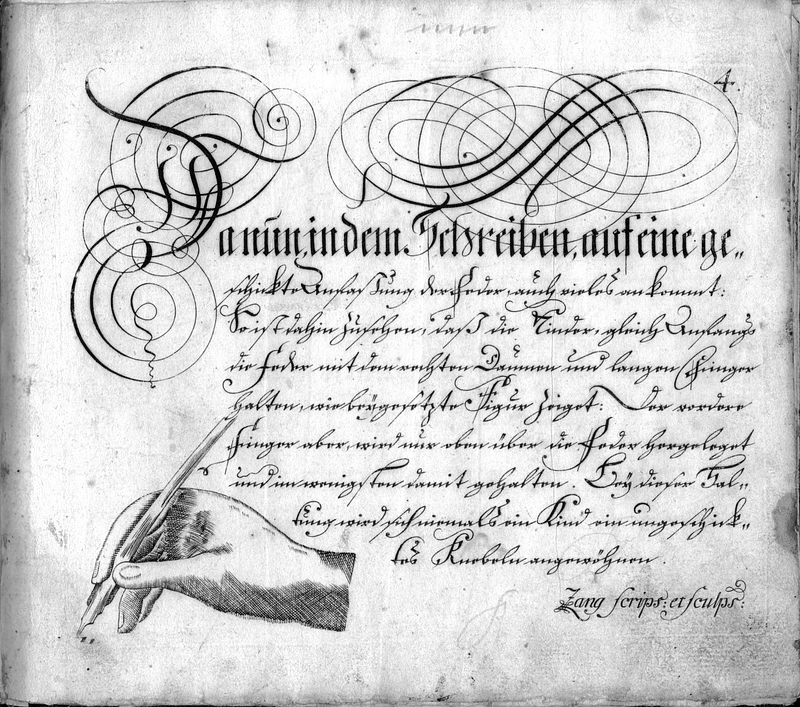 4.
Da nun, in dem Schreiben, auf eine ge„
schickte Anfassung der Feder, auch vieles ankommt:
So ist dahin zusehen, daß die Kinder, gleich Anfangs
die Feder mit dem rechten Daumen und langen Finger
halten, wie beygesetzte Figur zeiget: Der vordere
Finger aber, wird nur oben über die Feder hergeleget
und im wenigsten damit gehalten. Bey dieser Hal„
tung wird sich niemals ein Kind ein ungeschick„
tes Knebeln angewöhnen.
Zang scrips: et sculps: